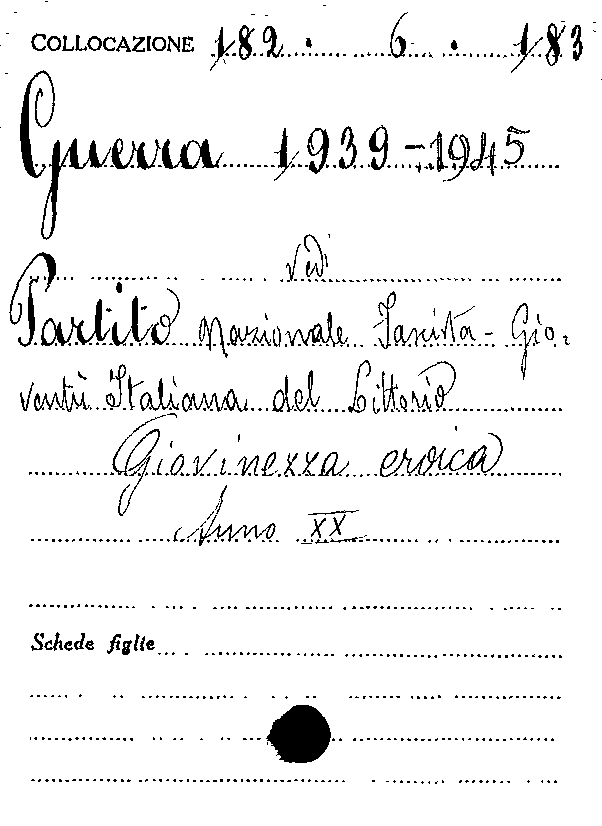 COLLOCAZIONE 182 . 6 . 183
Guerra 1939-1945
Vedi
Partito Nazionale Fascista - Gio-
ventù Italiana del Littorio
Giovinezza eroica
Anno XX
Schede figlie